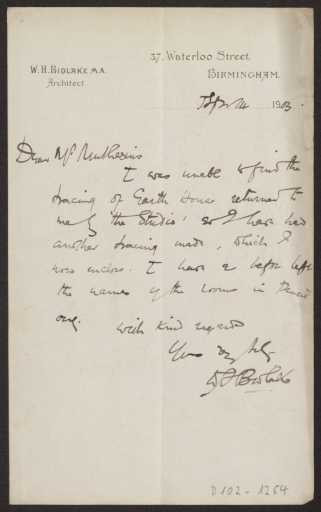 37. Waterloo Street,
W. H. BIDLAKE M.A.
BIRMINGHAM.
Architect.
14 1903.
Dear Mr Muthesius
I was unable to find the
tracing of Garth House returned to
me by the Studio: so I have had
another tracing made, which I
now enclose. I have as before left
the names of the rooms in pencil
only.
with kind regards
Yours
W H Bidlake
D 102 - 1264